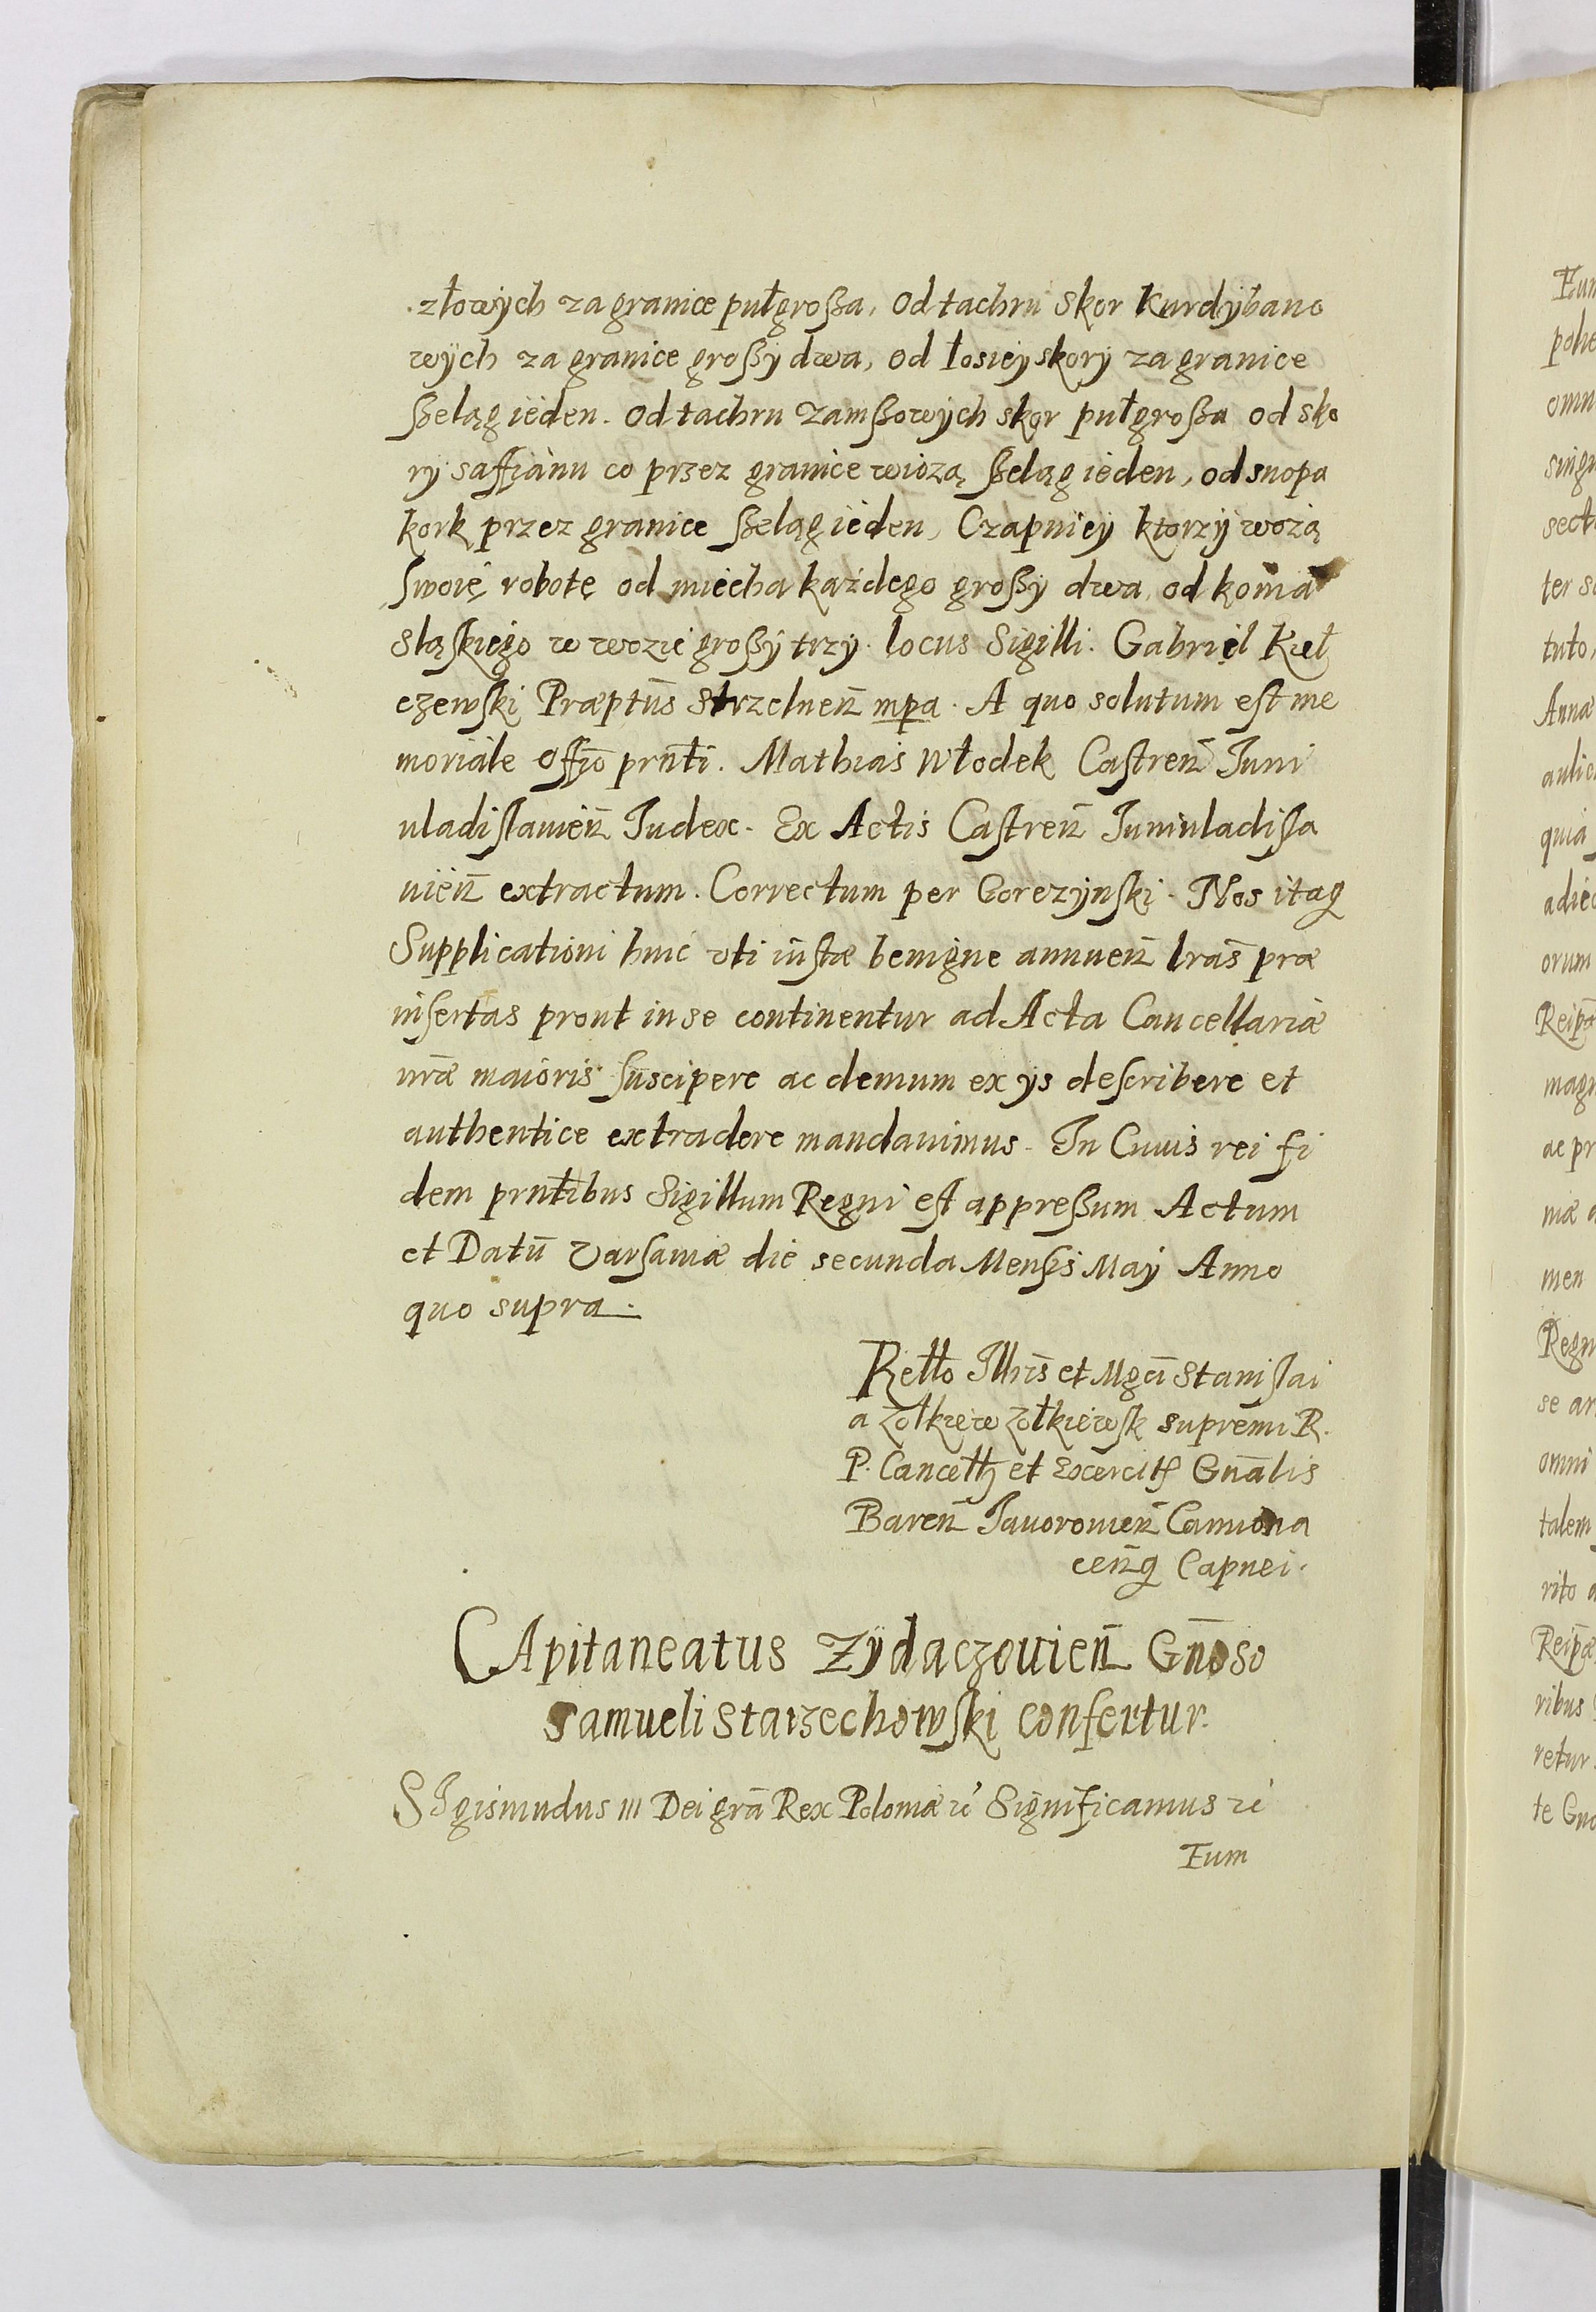 złowÿch za granice pułgroßa, od tachru skor kurdÿbano
wÿch za granice großÿ dwa, od łosieÿ skorÿ za granice
ßeląg ieden. od tachru zamßowÿch skor pułgroßa od sko
rÿ saffianu co przez granice wiozą ßeląg ieden, od snopa
kork przez granice ßeląg ieden, Czapnieÿ ktorzÿ wożą
swoię robotę od miecha każdego großÿ dwa, od koma
sląskiego w wozie großÿ trzÿ. locus Sigilli. Gabriel Kieł
czewski Præptūs Strzelneñ mpa. A quo solutum est me
moriale offīo prntī. Mathias Włodek Castreñ Juni
uladislauieñ Judex. Ex Actis Castreñ Juniuladisla
uieñ extractum. Correctum per Gorczÿnski. Nos itaq
Supplicationi huic vti iustæ benigne annueñ lrās præ
insertas prout in se continentur ad Acta Cancellariæ
nrǣ maioris suscipere ac demum ex ÿs describere et
authentice extradere mandauimus. In Cuius rei fi
dem prntībus Sigillum Regni est appreßum Actum
et Datū Varsauiæ die secunda Mensis Maÿ Anno
quo supra.
Rełło Illris et Mgci Stanislai
a Zołkiew Zołkiewsk supremi R.
P. Cancełł et Exercit Gnālis
Bareñ Jauorouieñ Camiona
ceñq Capnei.
CApitaneatus Zÿdaczouieñ Gnōso
Samueli Starzechowski confertur.
SIgismudus III Dei grā Rex Poloniæ ꝛc Significamus ꝛc
Eum